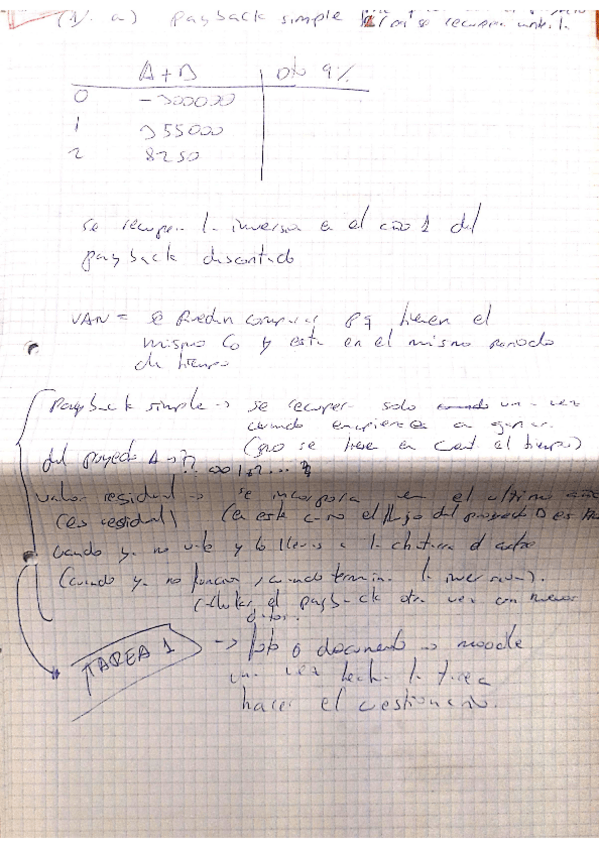 a) payback simple se recupera
A+B | Dto 9%
0 -300000
1 355000
2 8250
se recupera la inversa en el año 1 del
payback discontado
VAN = se pueden comparar pq tienen el
mismo Co y esta en el mismo periodo
de tiempo
Payback simple -> se recupera solo una vez
cuando empieces a ganar.
(no se tiene en cont el tiempo)
del proyecto A ->
valor residual -> se incorpora en el ultimo año
(es residual) (en este caso el flujo del proyecto D es
cuando ya no vale y lo llevas a la chatarra el
(cuando ya no funciona, cuando termina la inversion).
calcular el payback otra vez con nuevos
datos.
TAREA 1 -> foto o documento -> moodle
una vez hecha la tarea
hacer el cuestionario.